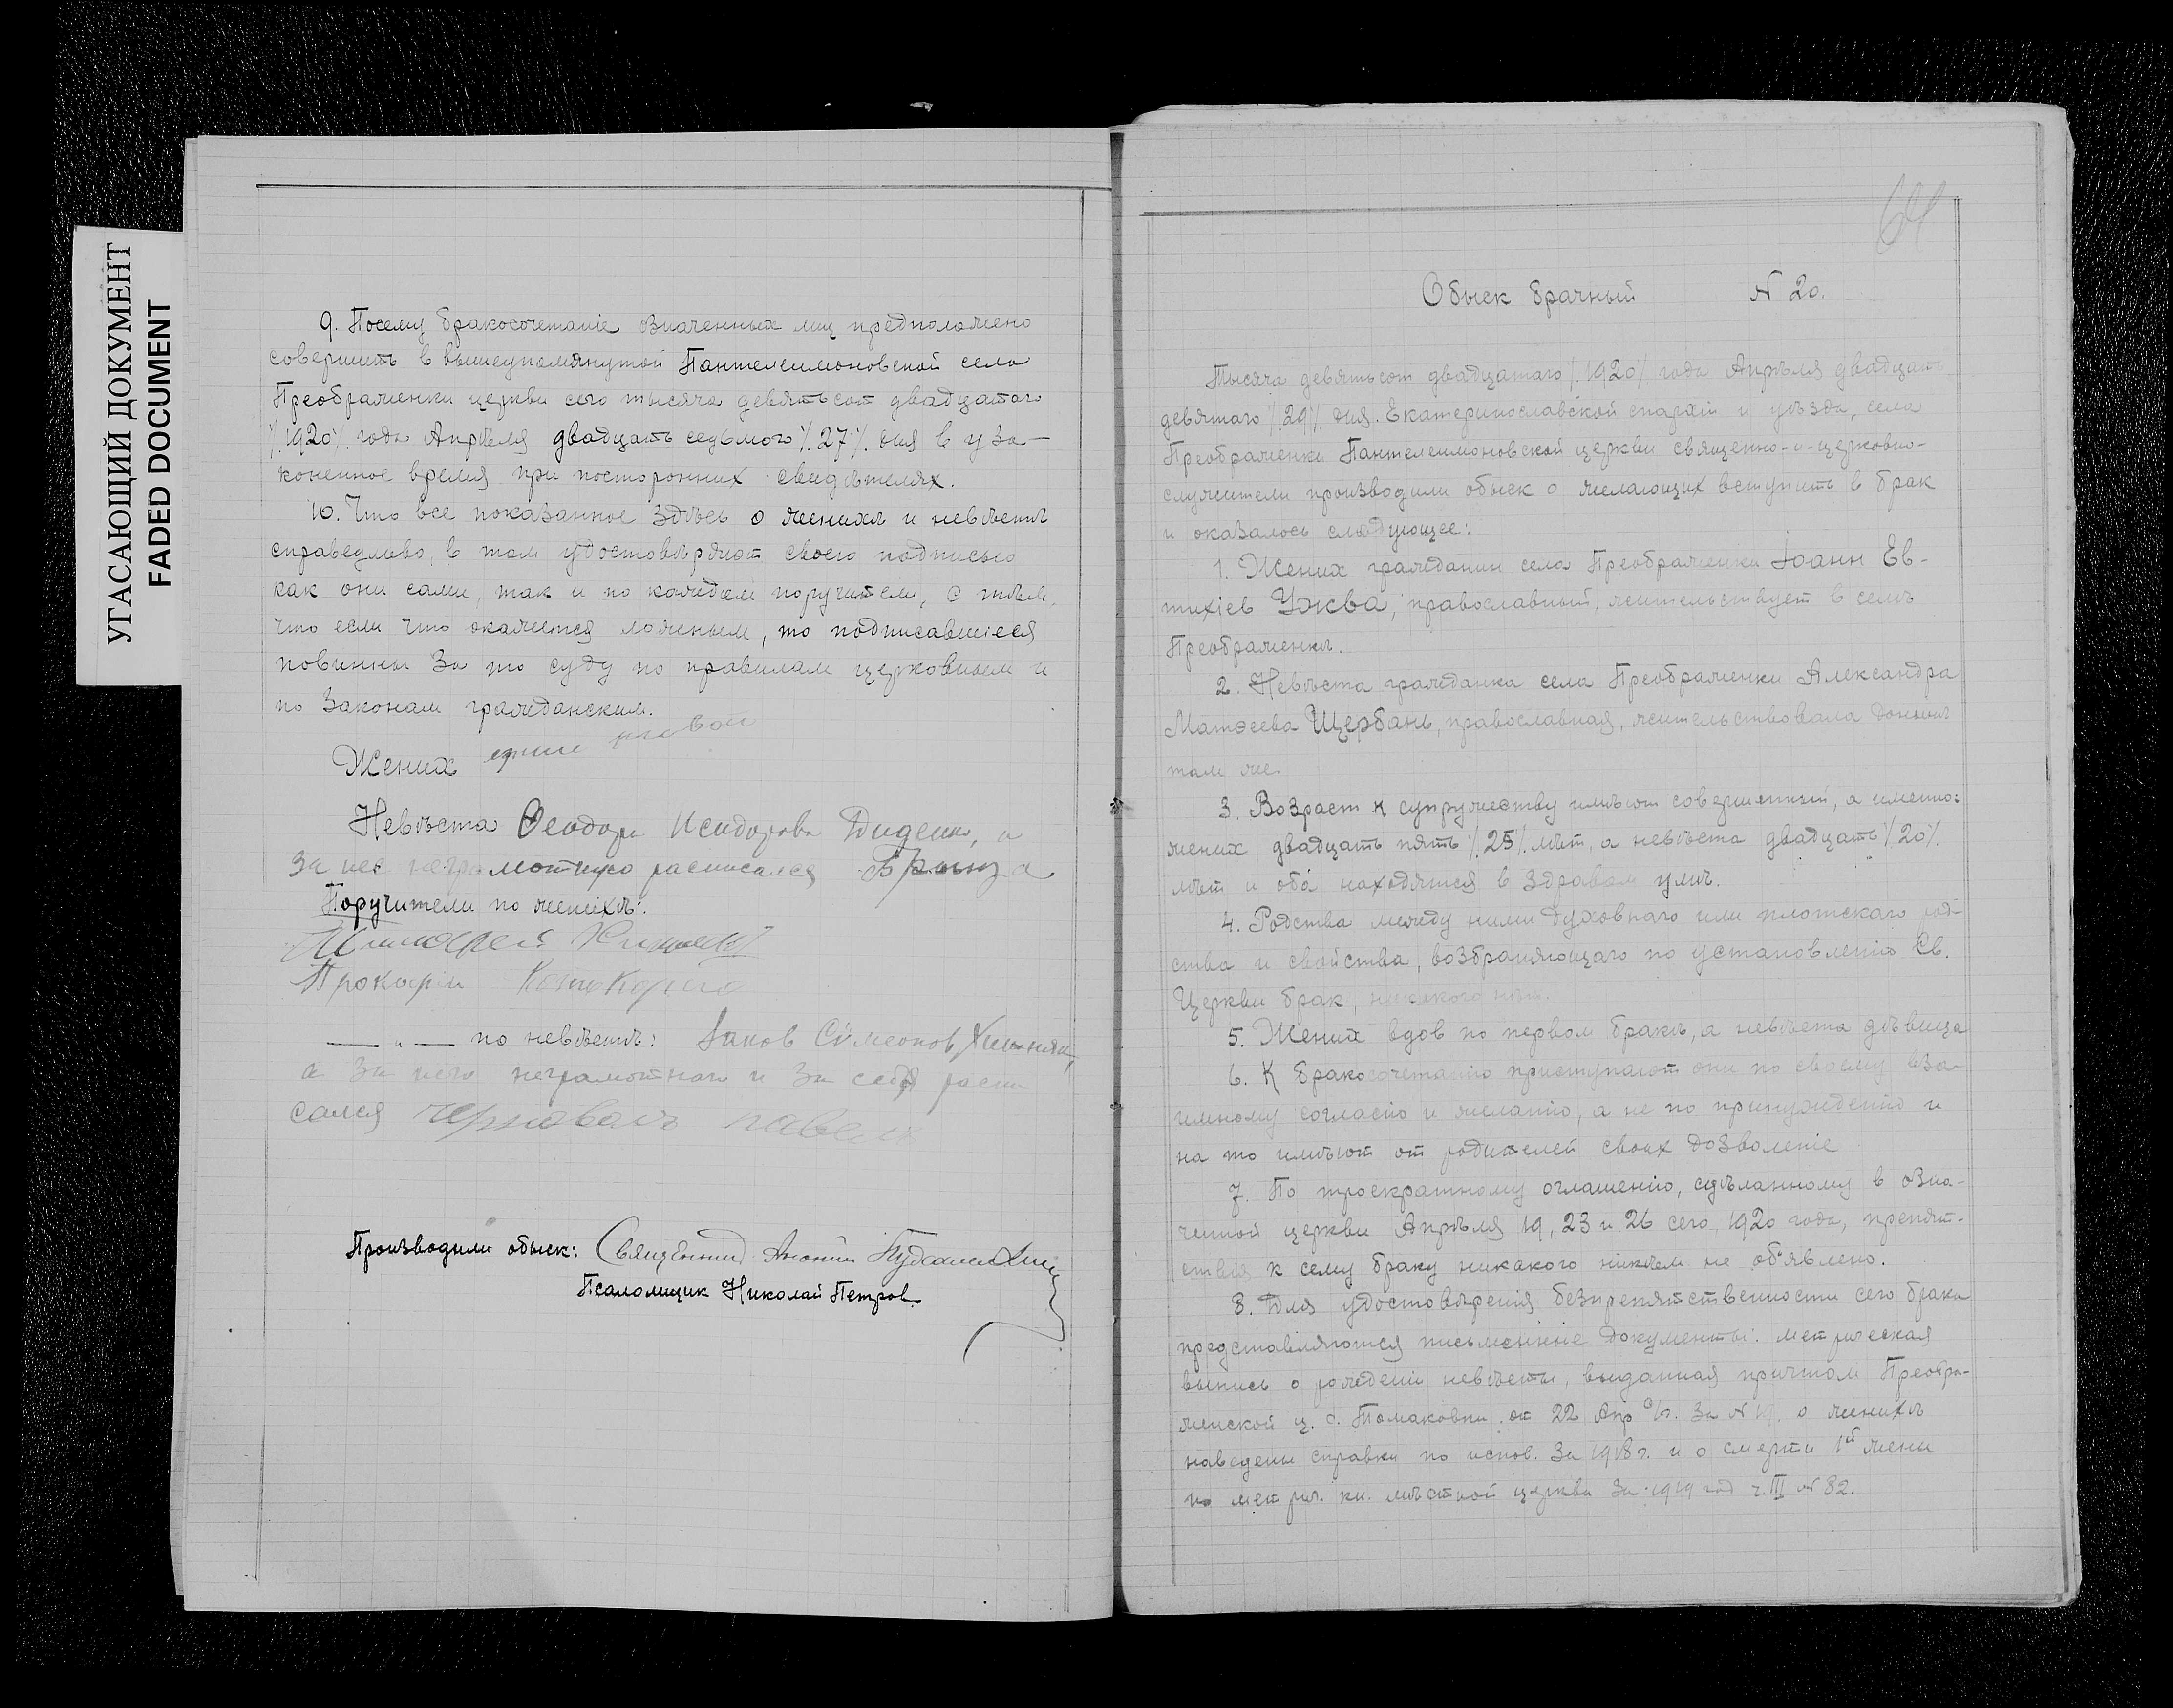 УГАСАЮЩИЙ ДОКУМЕНТ
FADED DOCUMENT
9. Посему бракосочетаніе означенных лиц предположено
совершить в вышеупомянутой Пантелеимоновской села
Преображенки церкви сего тысяча девятьсот двадцатого
/1920/ года Апрѣля двадцать седьмого /27/ дня в уза-
коненное время при посторонних свидѣтелях.
10. Что все показанное здѣсь о женихѣ и невѣстѣ
справедливо, в том удостовѣряют своею подписью
как они сами, так и по каждом поручители, с тѣм,
что если что окажется ложным, то подписавшіеся
повинны за то суду по правилам церковным и
по законам гражданским.
Жених
Невѣста Ѳеодора Исидорова Диденко, а
за нее неграмотную расписался Брынза
Поручители по женихѣ:
Прокофій
— „ — по невѣстѣ: Іаков Сѵмеонов
а за него неграмотнаго и за себя распи
сался
Производили обыск: Священник
Псаломщик Николай Петров.
64
Обыск брачный N 20.
Тысяча девятьсот двадцатаго /1920/ года Апрѣля двадцать
девятаго /29/ дня. Екатеринославской епархіи и уѣзда, села
Преображенки Пантелеимоновской церкви священно-и-церковно-
служители производили обыск о желающих вступить в брак
и оказалось слѣдующее:
1. Жених гражданин села Преображенки Іоанн Ев-
тихіев Ужва, православный, жительствует в селѣ
Преображенкѣ.
2. Невѣста гражданка села Преображенки Александра
Матѳеева Щербань, православная, жительствовала донынѣ
там же.
3. Возраст к супружеству имѣют совершенный, а именно:
жених двадцать пять /25/ лѣт, а невѣста двадцать /20/
лѣт и оба находятся в здравом умѣ.
4. Родства между ними духовнаго или плотскаго род-
ства и свойства, возбраняющаго по установленію Св.
Церкви брак, никакого нѣт.
5. Жених вдов по первом бракѣ, а невѣста дѣвица
6. К бракосочетанію приступают они по своему вза-
имному согласію и желанію, а не по принужденію и
на то имѣют от родителей своих дозволеніе
7. По троекратному оглашенію, сдѣланному в озна-
ченной церкви Апрѣля 19, 23 и 26 сего 1920 года, препят-
ствія к сему браку никакого никѣм не объявлено.
8. Для удостовѣренія безпрепятственности сего брака
представляются письменные документы: метрическая
выпись о рожденіи невѣсты, выданная причтом Преобра-
женской ц. с. Томаковки от 22 Апр с/г. за N 19. о женихѣ
наведены справки по испов. за 1918 г. и о смерти 1й жены
по метрич. кн. мѣстной церкви за 1919 год ч. III N 82.